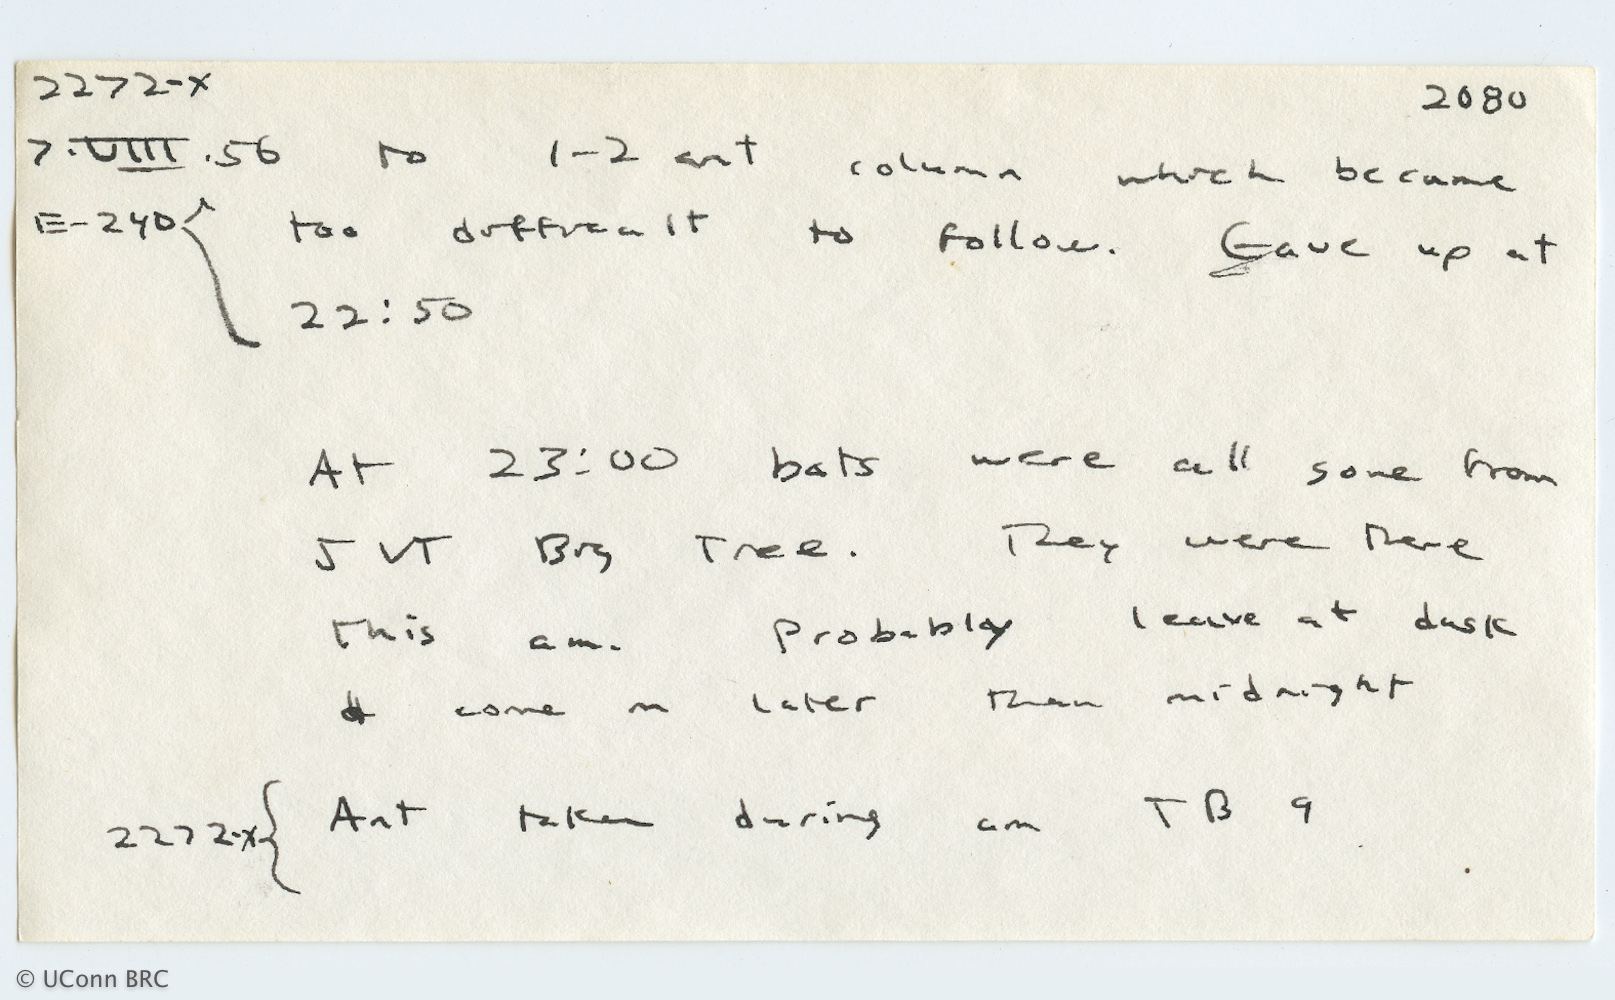 2272-X 2080
7.VIII.56 to 1-2 ant column which became
E-240 { too difficult to follow. Gave up at
22:50
At 23:00 bats were all gone from
5 VT Big Tree. They were there
this am. Probably leave at dusk
& come in later than midnight
2272-X { Ant taken during am TB 9
© UConn BRC